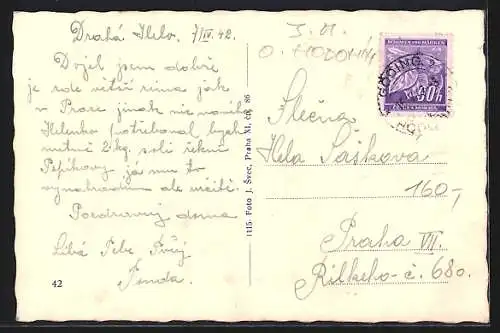 Drahá Helo. 7/IV. 42.
Dojel jsem dobře
je zde větší zima jak
v Praze jinak nic nového
Helenko potřeboval bych
2 kg. soli řekni
Pepíkovy já mu to
vynahradím ale určitě.
Pozdravuj doma
Líbá Tebe Tvůj
42
1115. Foto J. Švec, Praha XI, čp. 86
BÖHMEN UND MÄHREN
60h
GÖDING
Slečna
Hela Šašková
160,-
Praha VII.
č. 680.